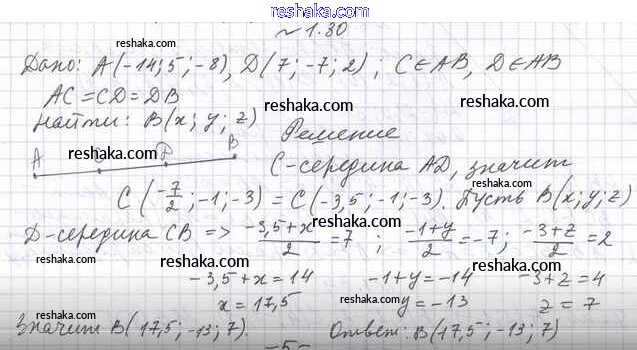 gdz.ru
№ 1.30
Дано: A(-14; 5; -8), D(7; -7; 2); C∈AB, D∈AB
AC = CD = DB
Найти: B(x; y; z)
Решение
A D B
C-середина AD, значит
C(-7/2; -1; -3) = C(-3,5; -1; -3). Пусть B(x; y; z)
D-середина CB => (-3,5+x)/2 = 7; (-1+y)/2 = -7; (-3+z)/2 = 2
-3,5+x = 14 -1+y = -14 -3+z = 4
x = 17,5 y = -13 z = 7
Значит B(17,5; -13; 7). Ответ: B(17,5; -13; 7)
-5-
reshaka.com
reshaka.com
reshaka.com
reshaka.com
reshaka.com
reshaka.com
reshaka.com
reshaka.com
reshaka.com
reshaka.com
reshaka.com
reshaka.com
reshaka.com
reshaka.com